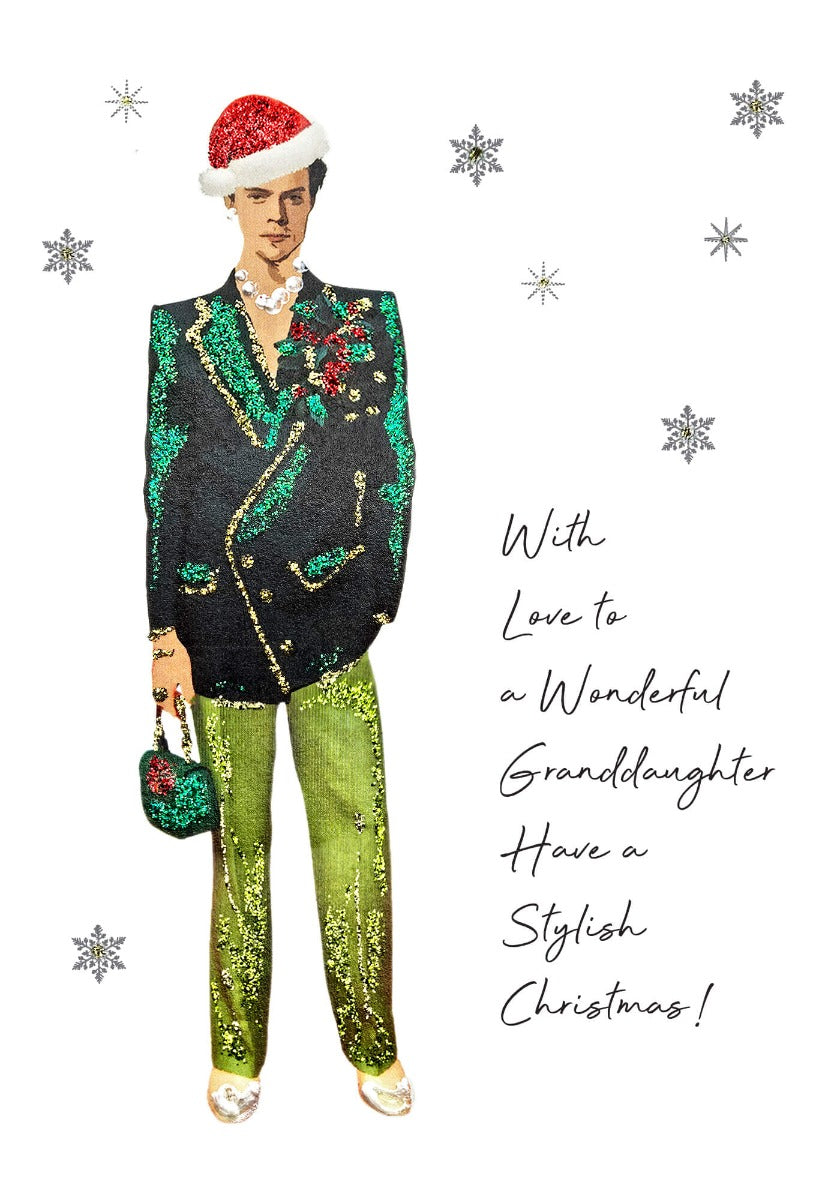 With
Love to
a Wonderful
Granddaughter
Have a
Stylish
Christmas!